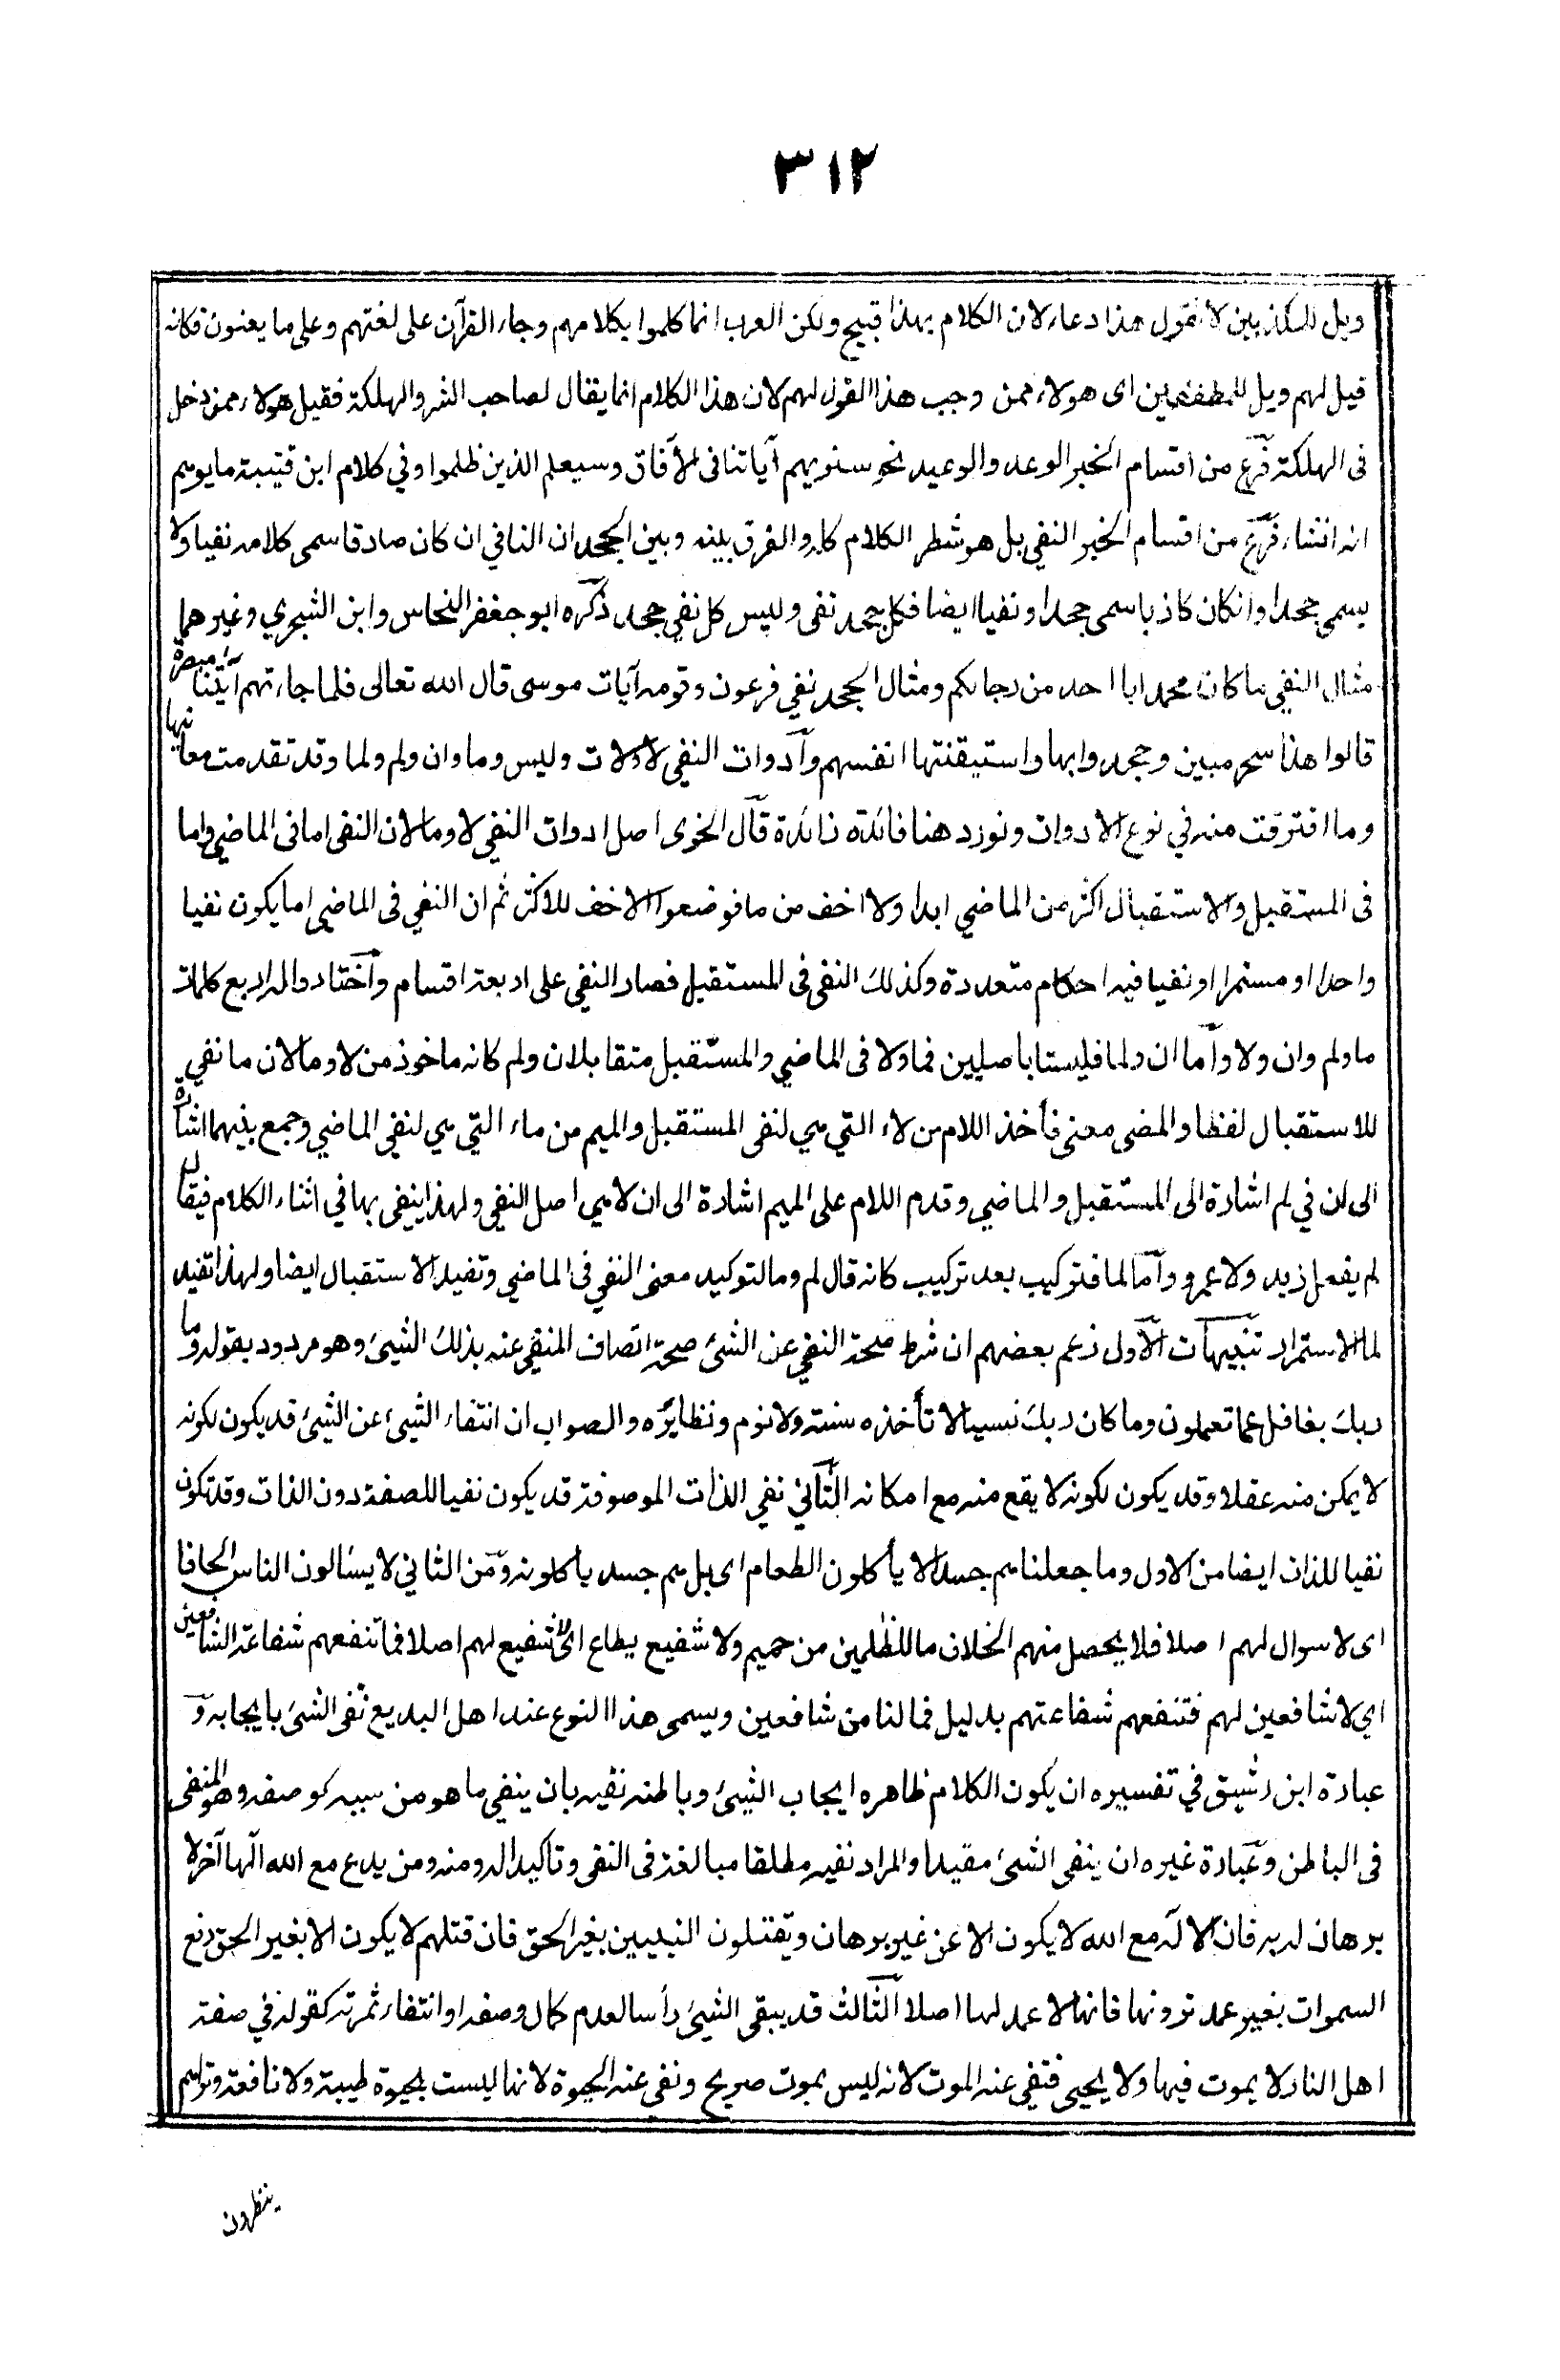 ٣١٢
ويل للمكذبين لا نقول هذا دعاء لان الكلام بهذا قبيح ولكن العرب انما كلموا بكلامهم وجاء القرآن على لغتهم وعلى ما يعنون فكانه
قيل لهم ويل للمطففين اى هولاء ممن وجب هذا القول لهم لان هذا الكلام انما يقال لصاحب الشر والهلكة فقيل هولاء ممن دخل
فى الهلكة فرع من اقسام الخبر الوعد والوعيد نحو سنريهم آياتنا فى الآفاق وسيعلم الذين ظلموا وفي كلام ابن قتيبة ما يوهم
انه انشاء فرع من اقسام الخبر النفي بل هو شطر الكلام كله والفرق بينه وبين الجحد ان النافي ان كان صادقا سمى كلامه نفيا ولا
يسمى جحدا وانكان كاذبا سمى جحدا ونفيا ايضا فكل جحد نفى وليس كل نفي جحد ذكره ابو جعفر النحاس وابن الشجري وغيرهما
مثال النفي ما كان محمد ابا احد من رجالكم ومثال الجحد نفي فرعون وقومه آيات موسى قال الله تعالى فلما جاءتهم آيتنا مبصرة
قالوا هذا سحر مبين وجحدوا بها واستيقنتها انفسهم وادوات النفي لا ولات وليس وما وان ولم ولما وقد تقدمت معانيها
وما افترقت منه في نوع الادوات ونورد هنا فائدة زائدة قال الخوى اصل ادوات النفي لا وما لان النفى اما فى الماضي واما
فى المستقبل والاستقبال اكثر من الماضي ابدا ولا اخف من ما فوضعوا الاخف للاكثر ثم ان النفي فى الماضي اما يكون نفيا
واحدا او مستمرا او نفيا فيه احكام متعددة وكذلك النفى فى المستقبل فصار النفي على اربعة اقسام واختاروا له اربع كلمات
ما ولم وان ولا واما ان ولما فليستا باصليين فما ولا فى الماضي والمستقبل متقابلان ولم كانه ماخوذ من لا وما لان ما نفي
للاستقبال لفظا والمضى معنى فأخذ اللام من لاء التي هي لنفى المستقبل والميم من ماء التي هي لنفي الماضي وجمع بينهما اشارة
الى ان في لم اشارة الى المستقبل والماضي وقدم اللام على الميم اشارة الى ان لا هي اصل النفى ولهذا ينفى بها في اثناء الكلام فيقال
لم يفعل زيد ولا عمرو واما لما فتركيب بعد تركيب كانه قال لم وما لتوكيد معنى النفى فى الماضي وتفيد الاستقبال ايضا ولهذا تفيد
لما الاستمرار تنبيهات الاول زعم بعضهم ان شرط صحة النفي عن الشئ صحة اتصاف المنفي عنه بذلك الشيئ وهو مردود بقوله وما
ربك بغافل عما تعملون وما كان ربك نسيا لا تأخذه سنة ولا نوم ونظايره والصواب ان انتفاء الشيئ عن الشيئ قد يكون لكونه
لا يمكن منه عقلا وقد يكون لكونه لا يقع منه مع امكانه الثاني نفي الذات الموصوفة قد يكون نفيا للصفة دون الذات وقد يكون
نفيا للذات ايضا من الاول وما جعلناهم جسدا لا يأكلون الطعام اى بل هم جسد يأكلونه ومن الثاني لا يسئالون الناس الحافا
اى لا سوال لهم اصلا فلا يحصل منهم الحاف ما للظلمين من حميم ولا شفيع يطاع اى لا شفيع لهم اصلا فما تنفعهم شفاعة الشافعين
اي لا شافعين لهم فتنفعهم شفاعتهم بدليل فما لنا من شافعين ويسمى هذا النوع عند اهل البديع نفى الشئ بايجابه و
عبارة ابن رشيق في تفسيره ان يكون الكلام ظاهره ايجاب الشيئ وباطنه نفيه بان ينفي ما هو من سببه كوصفه وهو المنفى
فى الباطن وعبارة غيره ان ينفى الشئ مقيدا والمراد نفيه مطلقا مبالغة فى النفى وتاكيدا له ومنه ومن يدع مع الله الها آخر لا
برهان له به فان الاله مع الله لا يكون الا عن غير برهان ويقتلون النبيين بغير الحق فان قتلهم لا يكون الا بغير الحق رفع
السموات بغير عمد ترونها فانها لا عمد لها اصلا الثالث قد ينفى الشيئ رأسا لعدم كمال وصفه او انتفاء ثمرته كقوله في صفة
اهل النار لا يموت فيها ولا يحيى فنفى عنه الموت لانه ليس بموت صريح ونفى عنه الحيوة لانها ليست بحيوة طيبة ولا نافعة وتراهم
ينظرون